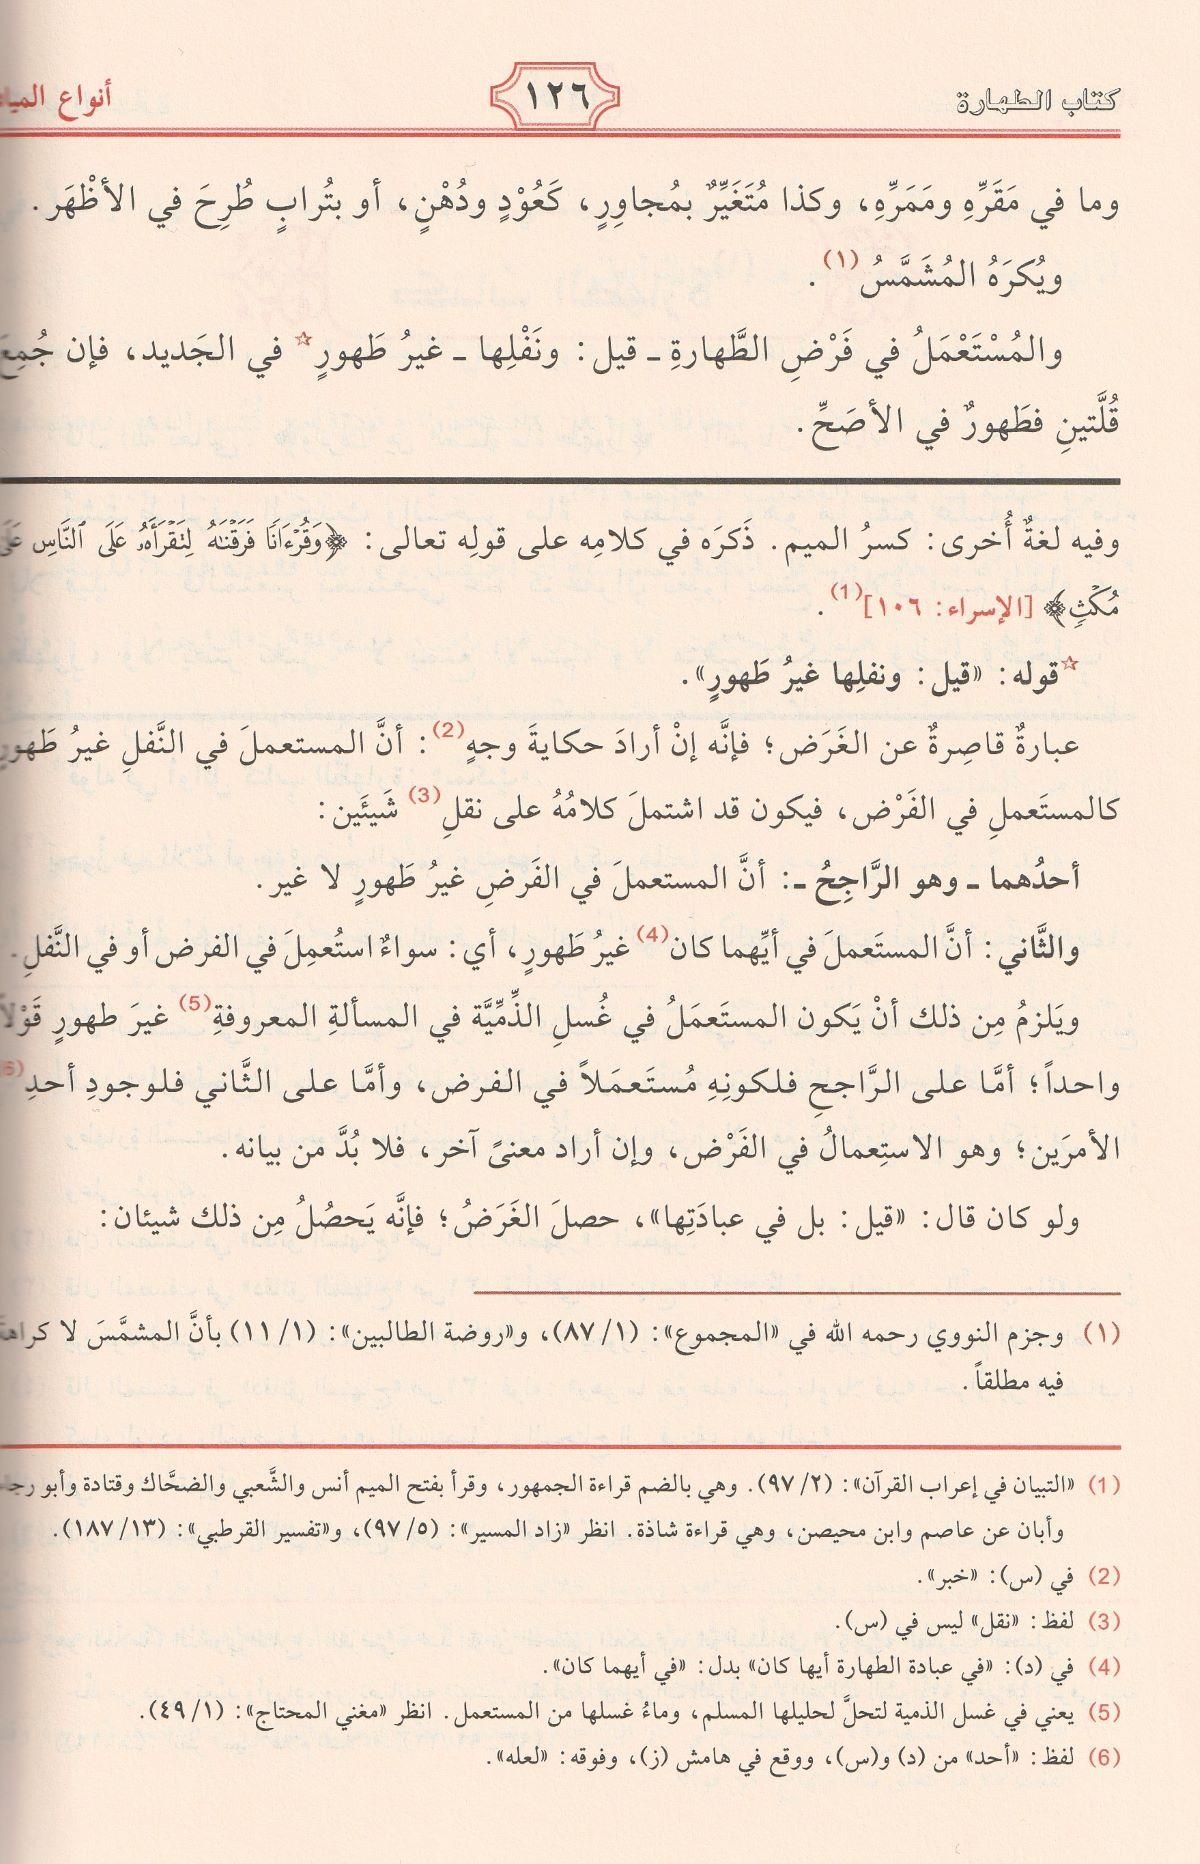 كتاب الطهارة
١٢٦
أنواع المياه
وما في مَقَرِّهِ ومَمَرِّهِ، وكذا مُتَغَيِّرٌ بمُجاوِرٍ، كَعُوْدٍ ودُهْنٍ، أو بتُرابٍ طُرِحَ في الأظْهَر.
ويُكرَهُ المُشَمَّسُ(١).
والمُسْتَعْمَلُ في فَرْضِ الطَّهارةِ ـ قيل: ونَفْلِها ـ غيرُ طَهورٍ☆ في الجَديد، فإن جُمِعَ
قُلَّتينِ فطَهورٌ في الأصَحِّ.
وفيه لغةٌ أُخرى: كسرُ الميم. ذَكرَه في كلامِه على قولِه تعالى: ﴿وَقُرْءَانًا فَرَقْنَٰهُ لِتَقْرَأَهُۥ عَلَى ٱلنَّاسِ عَلَىٰ
مُكْثٍ﴾ [الإسراء: ١٠٦](1).
☆قوله: «قيل: ونفلِها غيرُ طَهورٍ».
عبارةٌ قاصِرةٌ عن الغَرَض؛ فإنَّه إنْ أرادَ حكايةَ وجهٍ(2): أنَّ المستعملَ في النَّفلِ غيرُ طَهورٍ
كالمستَعملِ في الفَرْض، فيكون قد اشتملَ كلامُهُ على نقلِ(3) شَيئَين:
أحدُهما ـ وهو الرَّاجِحُ ـ: أنَّ المستعملَ في الفَرضِ غيرُ طَهورٍ لا غير.
والثَّاني: أنَّ المستَعملَ في أيِّهما كان(4) غيرُ طَهورٍ، أي: سواءٌ استُعمِلَ في الفرض أو في النَّفلِ.
ويَلزمُ مِن ذلك أنْ يَكون المستَعمَلُ في غُسلِ الذِّمِّيَّة في المسألةِ المعروفةِ(5) غيرَ طهورٍ قَوْلاً
واحداً؛ أمَّا على الرَّاجحِ فلكونِهِ مُستَعمَلاً في الفرض، وأمَّا على الثَّاني فلوجودِ أحدِ(6)
الأمرَين؛ وهو الاستِعمالُ في الفَرْض، وإن أراد معنىً آخر، فلا بُدَّ من بيانه.
ولو كان قال: «قيل: بل في عبادَتِها»، حصلَ الغَرَضُ؛ فإنَّه يَحصُلُ مِن ذلك شيئان:
(١) وجزم النووي رحمه الله في «المجموع»: (٨٧/١)، و«روضة الطالبين»: (١١/١) بأنَّ المشمَّسَ لا كراهة
فيه مطلقاً.
(1) «التبيان في إعراب القرآن»: (٩٧/٢). وهي بالضم قراءة الجمهور، وقرأ بفتح الميم أنس والشَّعبي والضحَّاك وقتادة وأبو رجاء
وأبان عن عاصم وابن محيصن، وهي قراءة شاذة. انظر «زاد المسير»: (٩٧/٥)، و«تفسير القرطبي»: (١٨٧/١٣).
(2) في (س): «خبر».
(3) لفظ: «نقل» ليس في (س).
(4) في (د): «في عبادة الطهارة أيها كان» بدل: «في أيهما كان».
(5) يعني في غسل الذمية لتحلَّ لحليلها المسلم، وماءُ غسلها من المستعمل. انظر «مغني المحتاج»: (٤٩/١).
(6) لفظ: «أحد» من (د) و(س)، ووقع في هامش (ز)، وفوقه: «لعله».